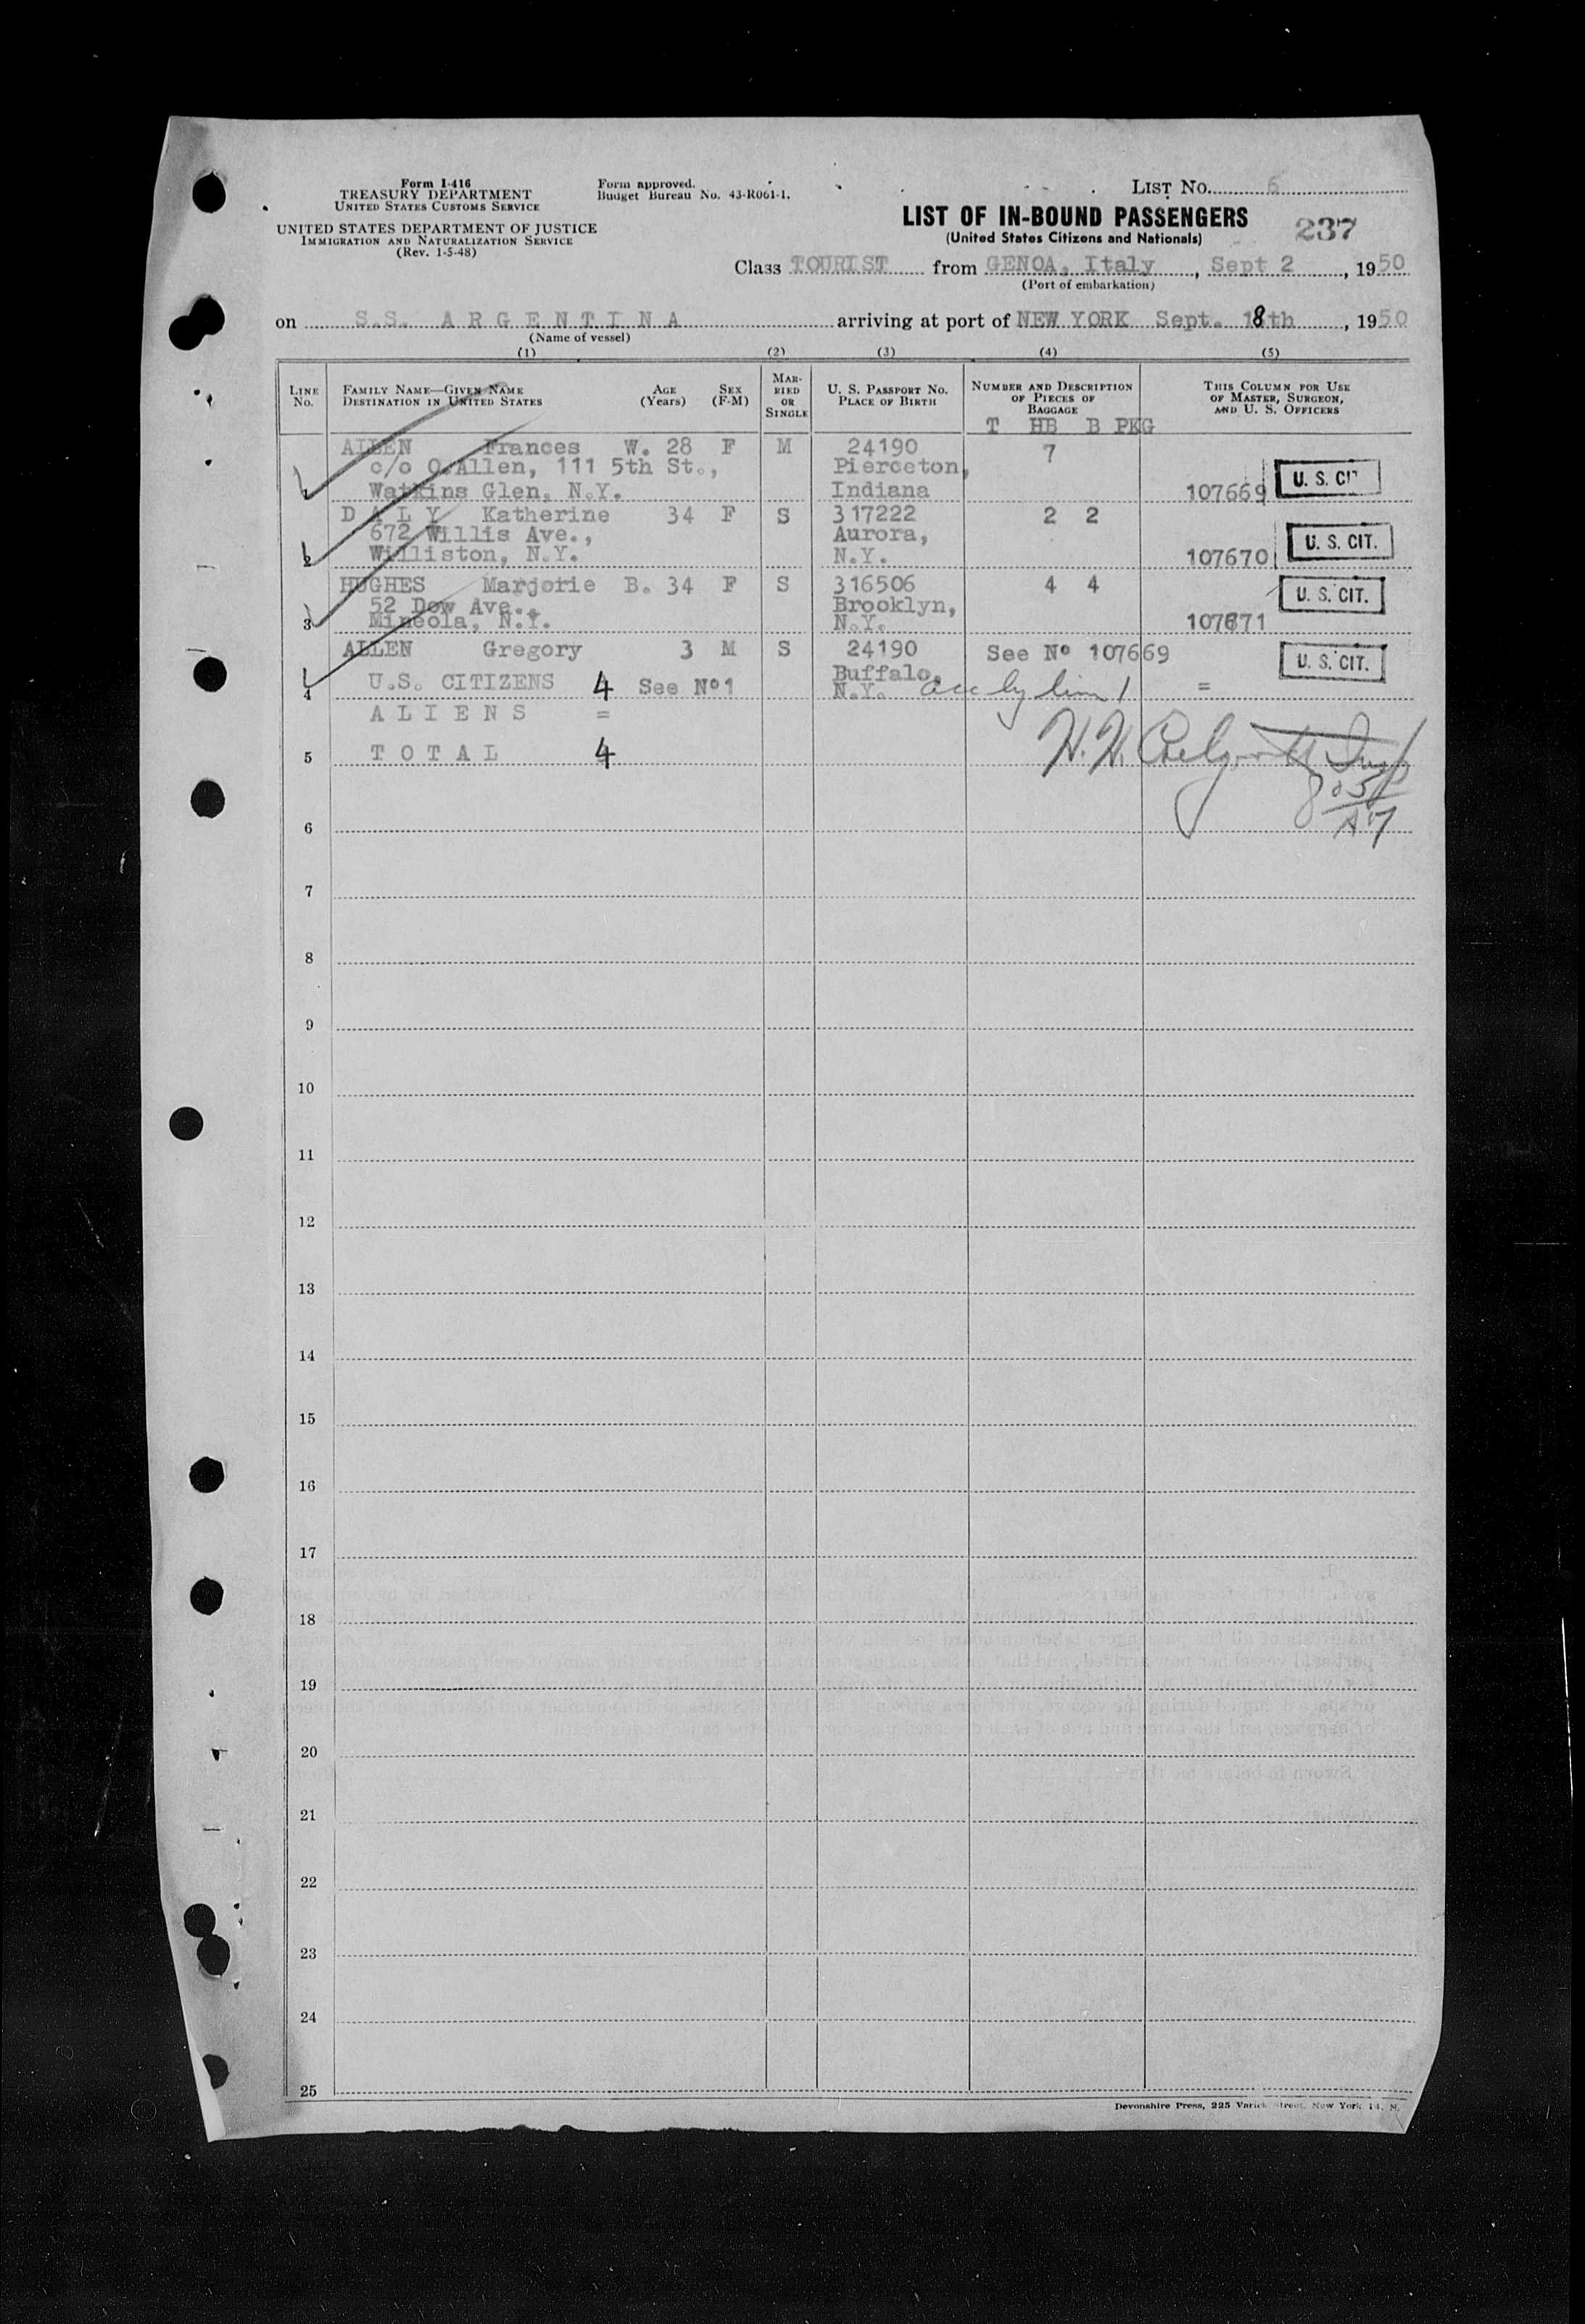 Form I-416
TREASURY DEPARTMENT
UNITED STATES CUSTOMS SERVICE
UNITED STATES DEPARTMENT OF JUSTICE
IMMIGRATION AND NATURALIZATION SERVICE
(Rev. 1-5-48)
Form approved.
Budget Bureau No. 43-R061-1.
LIST No. 6
LIST OF IN-BOUND PASSENGERS
(United States Citizens and Nationals)
237
Class TOURIST from GENOA, Italy, Sept 2, 1950
(Port of embarkation)
on S.S. ARGENTINA arriving at port of NEW YORK Sept. 18th, 1950
(Name of vessel)
(1) (2) (3) (4) (5)
LINE No. FAMILY NAME—GIVEN NAME DESTINATION IN UNITED STATES AGE (Years) SEX (F-M) MARRIED OR SINGLE U. S. PASSPORT NO. PLACE OF BIRTH NUMBER AND DESCRIPTION OF PIECES OF BAGGAGE THIS COLUMN FOR USE OF MASTER, SURGEON, AND U. S. OFFICERS
T HB B PKG
ALLEN Frances W. 28 F M 24190 7
c/o O.Allen, 111 5th St., Pierceton, U. S. CIT
1 Watkins Glen, N.Y. Indiana 107669
DALY Katherine 34 F S 317222 2 2
672 Willis Ave., Aurora, U. S. CIT.
2 Williston, N.Y. N.Y. 107670
HUGHES Marjorie B. 34 F S 316506 4 4 U. S. CIT.
52 Dow Ave., Brooklyn,
3 Mineola, N.Y. N.Y. 107671
ALLEN Gregory 3 M S 24190 See No 107669 U. S. CIT.
4 U.S. CITIZENS 4 See No 1 Buffalo, N.Y. acc by line 1 =
ALIENS =
5 TOTAL 4
H. H.
6
7
8
9
10
11
12
13
14
15
16
17
18
19
20
21
22
23
24
25
Devonshire Press, 225 Varick Street, New York 14, N.